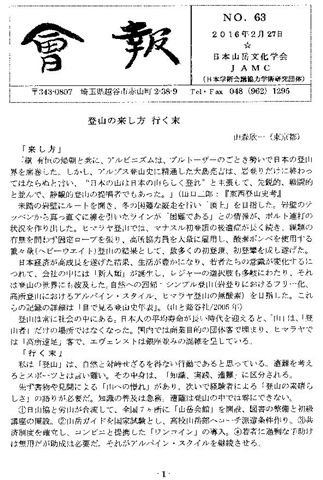 會報
NO. 63
2016年2月27日
☆
日本山岳文化学会
JAMC
(日本学術会議協力学術研究団体)
〒343-0807 埼玉県越谷市赤山町2-58-9 Tel・Fax 048 (962) 1295
登山の来し方 行く末
(東京都)
「来し方」
有恒の帰朝と共に、アルピニズムは、ブルドーザーのごとき勢いで日本の登山
界を席巻した。しかし、アルプス登山史に精通した大島亮吉は、岩登りだけに終わっ
てはならぬと言い、"日本の山は日本の山らしく登れ"と主張して、先鋭的、戦闘的
と並んで、静観的登山の提唱者でもあった。」(山口二郎:『東西登山史考』
末踏の岩壁にルートを開き、冬の困難な縦走を行い「頂上」を目指した。岩壁のテ
ッペンから真っ直ぐに線を引いたラインが「困難である」との情報が、ボルト連打の
状況を作り出した。ヒマラヤ登山では、マナスル初登頂の後遺症が長く続き、課題の
有無を問わず固定ロープを張り、高所協力員を大量に雇用し、酸素ボンベを使用する
重々荷(ヘビーウエイト)登山の結果として、数多くの初登頂、初登攀を成し遂げた。
日本経済が高成長を遂げた結果、生活が豊かになり、若者たちの意識が変化するに
つれて、会社の中には「新人類」が誕生し、レジャーの選択肢も多岐にわたり、それ
は登山の世界にも波及した。自然への回帰・シンプル登山(岩登りにおけるフリー化、
高所登山におけるアルパイン・スタイル、ヒマラヤ登山の無酸素)を目指した。これ
らの記録の詳細は『目で見る登山史年表』。(山と渓谷社/2005年)
登山は常に社会の中にある。日本人の平均寿命が長い時代を迎えると、「山」は、「登
山者」だけの場所ではなくなった。国内では商業目的の団体客で埋まり、ヒマラヤで
は「高所遠足」客で、エヴェレストは銀座並みの混雑を呈している。
「行く末」
私は「登山」は、自然と対峙せざるを得ない行動であると思っている。遭難を考え
るとスポーツとは言い難い。その中身は、「知識、実践、遭難」に区分される。
先ず書物や見聞による「山への憧れ」があり、次いで経験者による「登山の素晴ら
しさ」の語りが必要だ。知識の普及は急務。遭難は登山の中では寡にできない。
①日山協と労山が合流して、全国7ヶ所に「山岳会館」を開設、図書の整備と初級
講座の開設。②山岳ガイドを国家試験とし、高校山岳部へコーチ派遣条件作り。③共
済制度を確立し、コンビニと提携した「ワンコイン」の導入。④若者に過剰な手助け
は無用だが助成は必要だ。それがアルパイン・スタイルを継続させる。
- 1 -